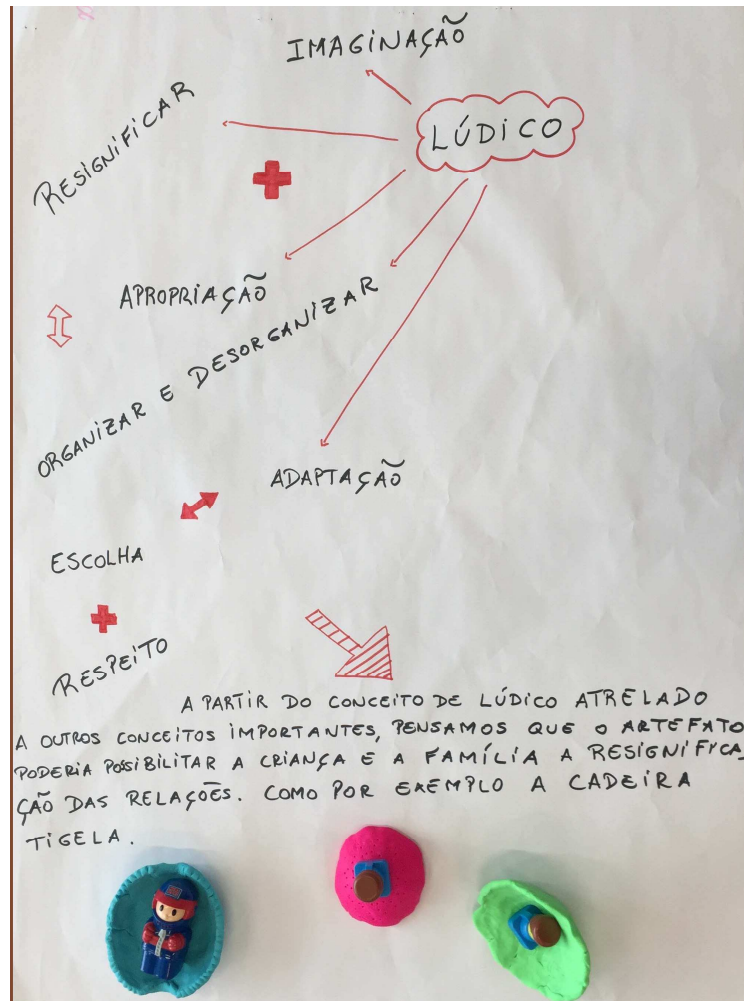 IMAGINAÇÃO
LÚDICO
RESIGNIFICAR
APROPRIAÇÃO
ORGANIZAR E DESORGANIZAR
ADAPTAÇÃO
ESCOLHA
RESPEITO
A PARTIR DO CONCEITO DE LÚDICO ATRELADO
A OUTROS CONCEITOS IMPORTANTES, PENSAMOS QUE O ARTEFATO
PODERIA POSSIBILITAR A CRIANÇA E A FAMÍLIA A RESIGNIFICA_
ÇÃO DAS RELAÇÕES. COMO POR EXEMPLO A CADEIRA
TIGELA.